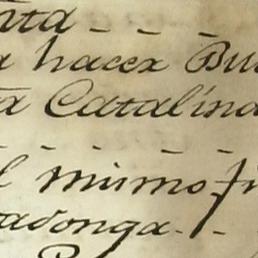 nta - - -
a hacer Bu
ta Catalina
- - - - - -
l mismo
adonga - -